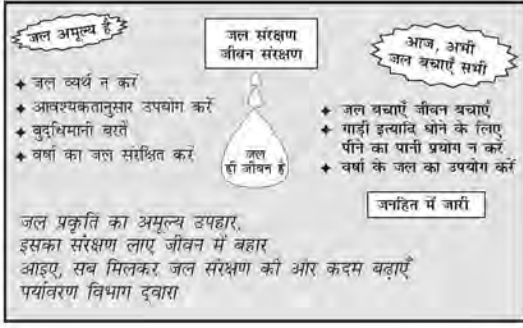 जल अमूल्य है
जल संरक्षण
जीवन संरक्षण
आज, अभी
जल बचाएँ सभी
✦ जल व्यर्थ न करें
✦ आवश्यकतानुसार उपयोग करें
✦ बुद्धिमानी बरतें
✦ वर्षा का जल संरक्षित करें
जल
ही जीवन है
✦ जल बचाएँ जीवन बचाएँ
✦ गाड़ी इत्यादि धोने के लिए
पीने का पानी प्रयोग न करें
✦ वर्षा के जल का उपयोग करें
जनहित में जारी
जल प्रकृति का अमूल्य उपहार,
इसका संरक्षण लाए जीवन में बहार
आइए, सब मिलकर जल संरक्षण की ओर कदम बढ़ाएँ
पर्यावरण विभाग द्वारा